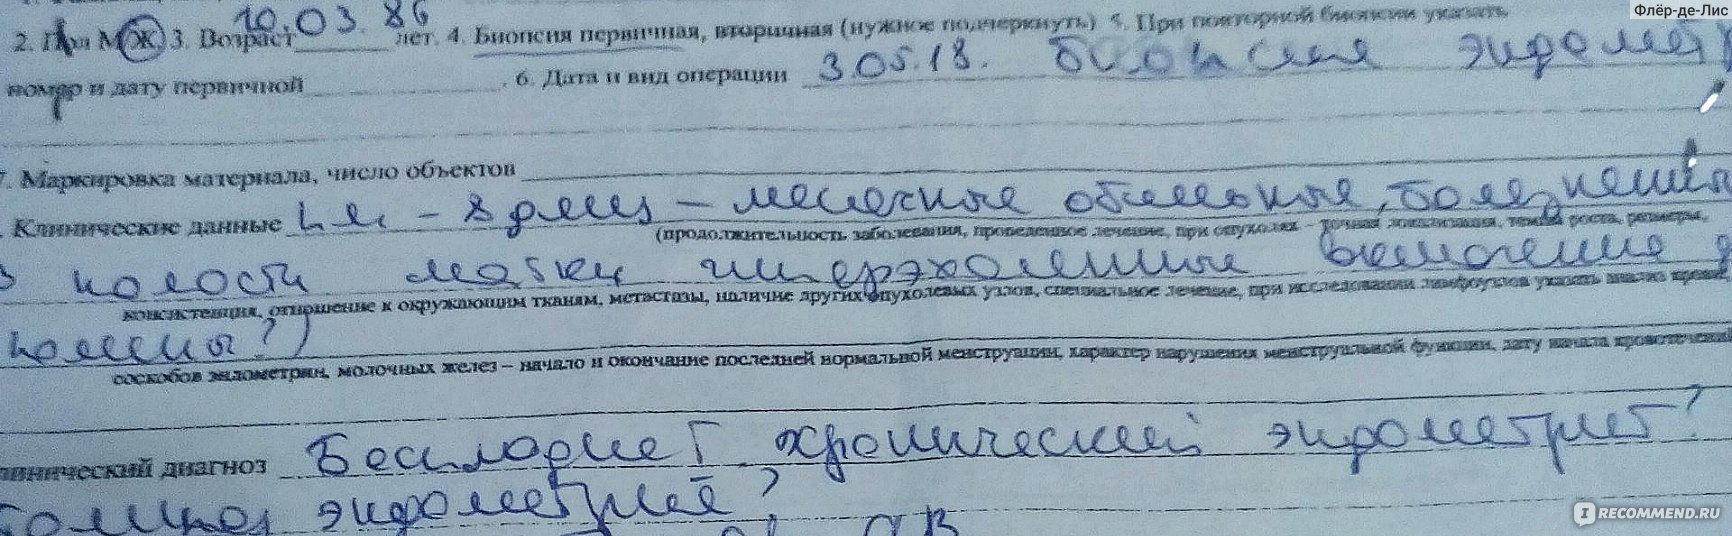 Флёр-де-Лис
2. Пол М Ж 3. Возраст 10.03.86 лет. 4. Биопсия первичная, вторичная (нужное подчеркнуть) 5. При повторной биопсии указать
номер и дату первичной . 6. Дата и вид операции 3.05.18. биопсия эндомет
7. Маркировка материала, число объектов
Клинические данные - месячные обильные, болезненны
(продолжительность заболевания, проведенное лечение, при опухолях – точная локализация, темпы роста, размеры,
в полости матки гиперэхогенные включение
консистенция, отношение к окружающим тканям, метастазы, наличие других опухолевых узлов, специальное лечение, при исследовании лимфоузлов указать анализ крови,
полипы?)
соскобов эндометрия, молочных желез – начало и окончание последней нормальной менструации, характер нарушения менструальной функции, дату начала кровотечения
линический диагноз Бесплодие I хронический эндометрит?
Полипоз эндометрия?
IRECOMMEND.RU